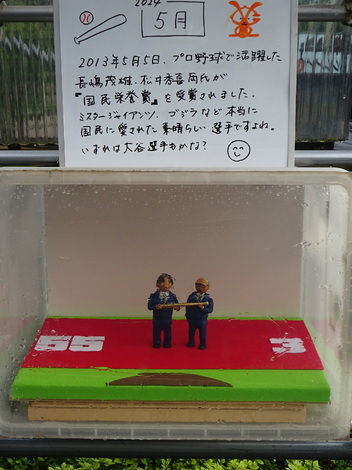 2024
5月
2013年5月5日、プロ野球で活躍した
長嶋茂雄、松井秀喜両氏が
『国民栄誉賞』を受賞されました。
ミスタージャイアンツ、ゴジラなど本当に
国民に愛された素晴らしい選手ですよね。
いずれは大谷選手もかな?
55
3